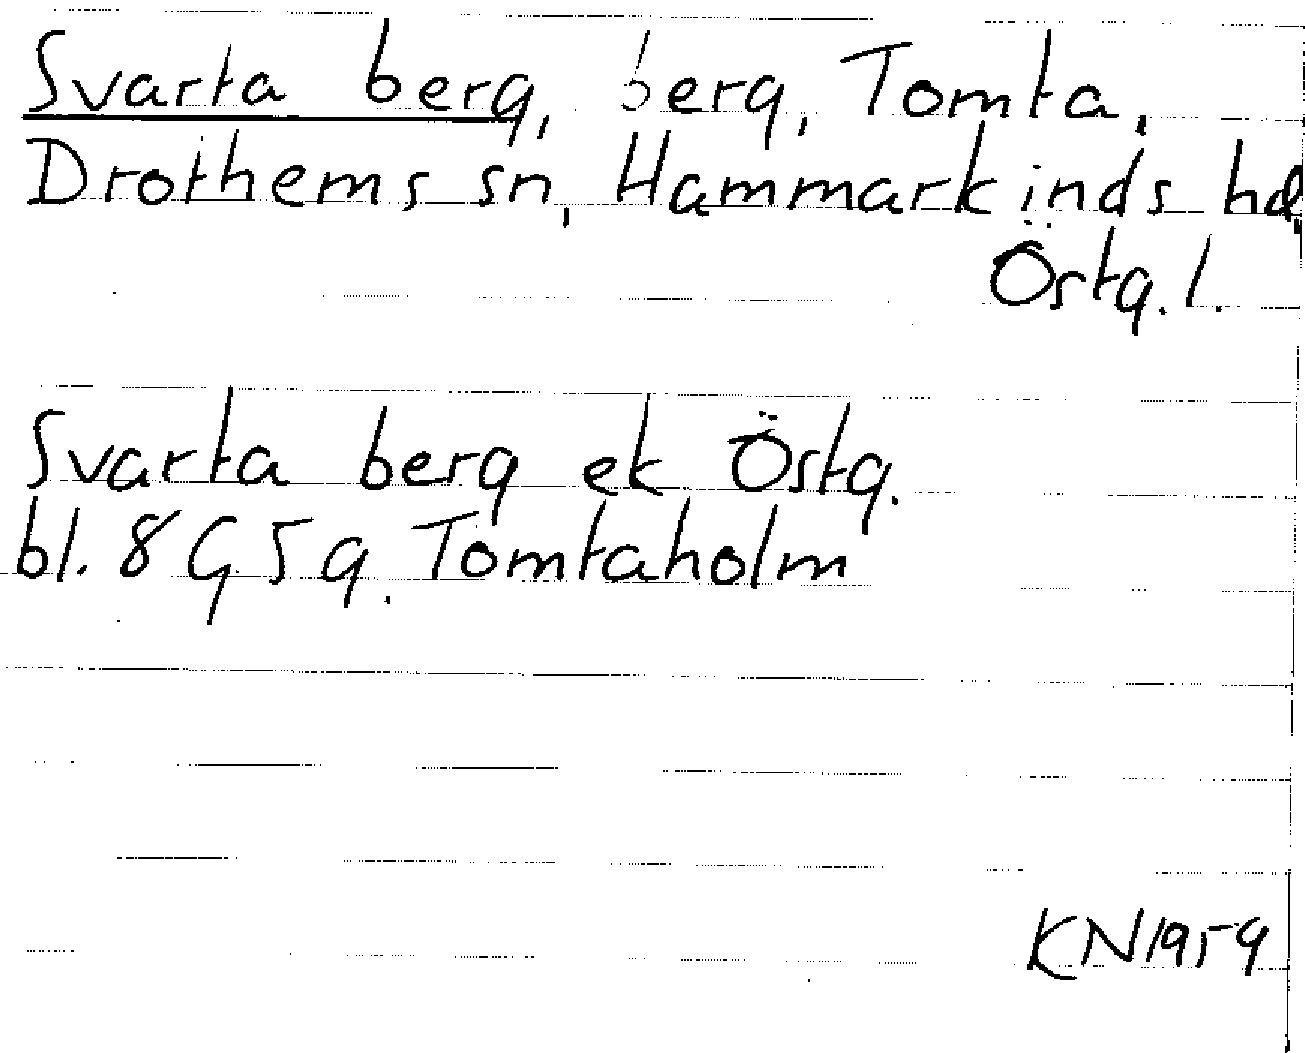 Svarta berg, berg, Tomta,
Drothems sn, Hammarkinds hd,
Östg. l.
Svarta berg ek Östg.
bl. 8 G 5 g. Tomtaholm
KN 1959